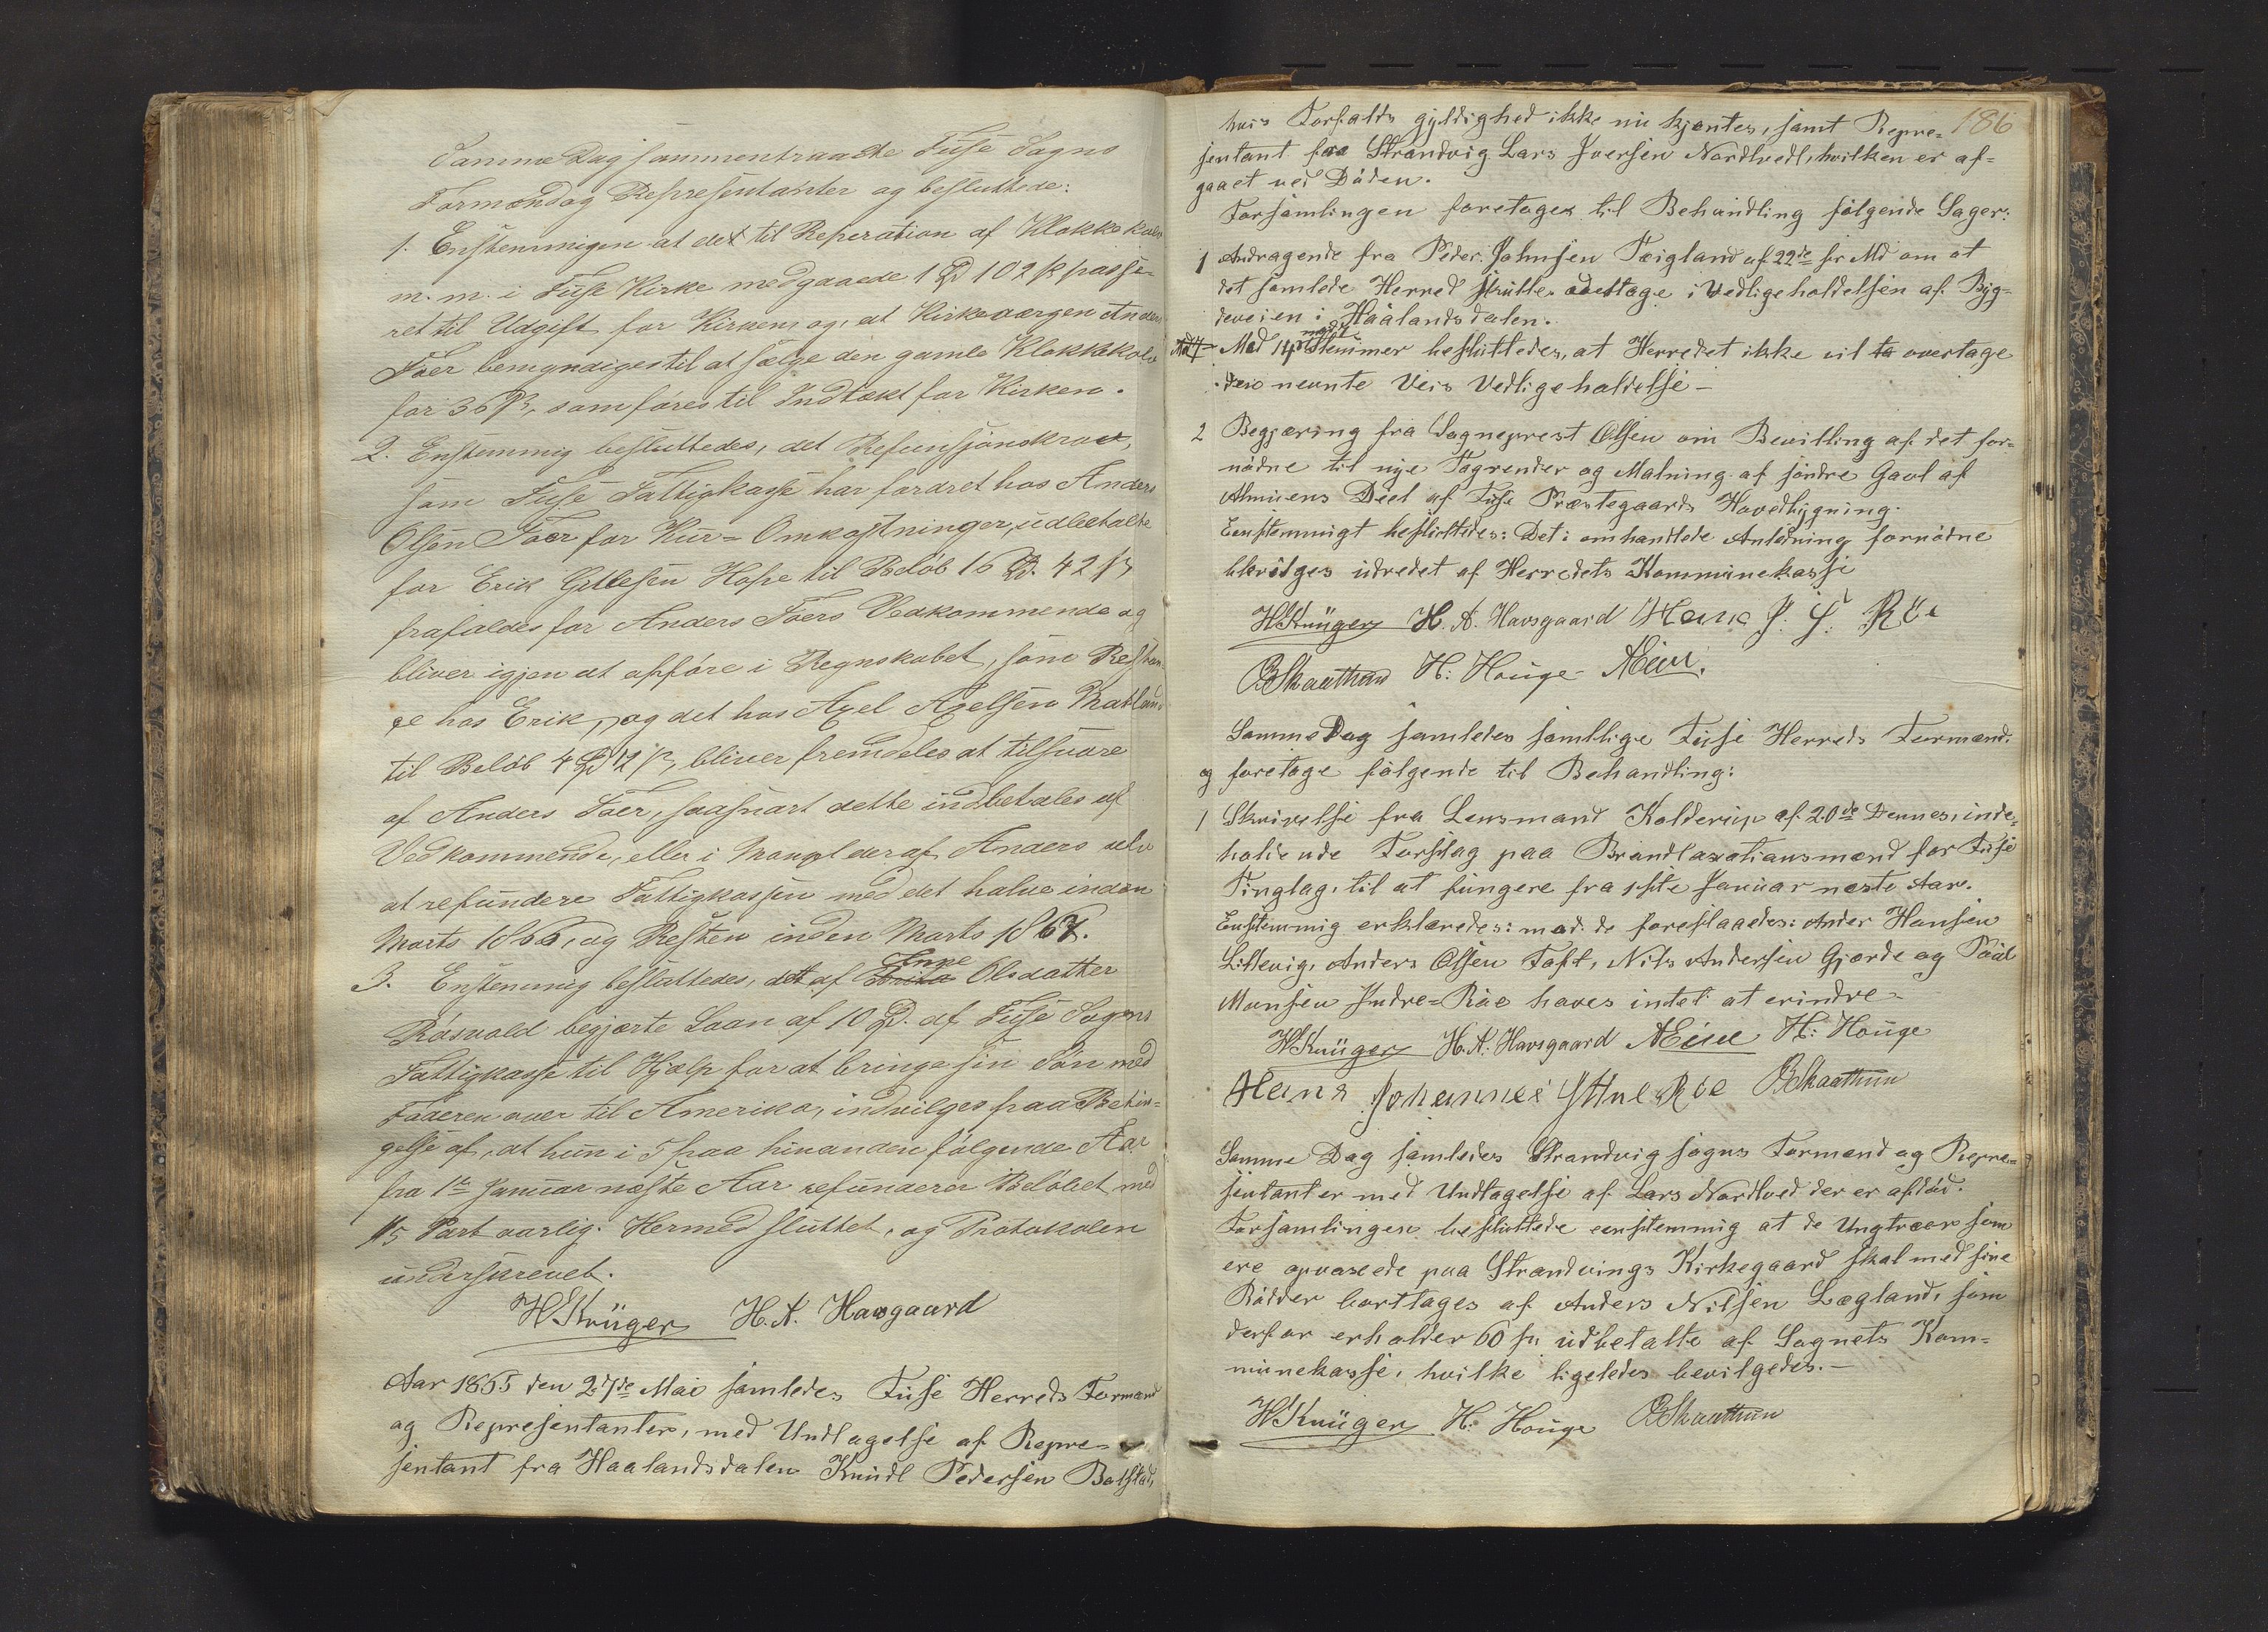 Samme Dag sammentraadte Fuse Sogns
Formænd og Repræsentanter og besluttede:
1. Enstemmigen at det til Reperation af Klokkekolv
m. m. i Fuse Kirke medgaaede 1 Spd 102 ß passe-
ret til Udgift for Kirken, og, at Kirkeværgen Anders
Tøer bemyndiges til at sælge den gamle Klokkekolv
for 36 ß, som føres til Indtækt for Kirken.
2. Enstemmig besluttedes, det Refunsjonskrav,
som Fuse Fattigkasse har fordret hos Anders
Olsen Tøer for Kur=Omkostninger, udbetalte
for Erik Gitlesen Hope til Beløb 16 Spd. 42 ß
frafaldes for Anders Tøers Vedkommende og
bliver igjen at opføre i Regnskabet, som Restan-
ce hos Erik, og det hos Axel Axelsen Marland
til Beløb 4 Spd 12 ß, bliver fremdeles at tilsvare
af Anders Tøer, saasnart dette indbetales af
Vedkommende, eller i Mangel deraf Anders selv
at refundere Fattigkassen med det halve inden
Marts 1866, og Resten inden Marts 1867.
3. Enstemmig besluttedes, det af Anne Olsdatter
Røsvold begjærte Laan af 10 Spd. af Fuse Sogns
Fattigkasse til Hjælp for at bringe sin Søn med
Faderen over til Amerika, indvilges paa Betin=
gelse af, at hun i 5 paa hinanden følgende Aar
fra 1te Januar næste Aar refunderer Beløbet med
1/5 Part aarlig. Hermed sluttet, og Protokolen
underskrevet.
HKrüger H. A. Havsgaard
Aar 1865 den 27de Mai samledes Fuse Herreds Formænd
og Representanter, med Undtagelse af Repre=
sentant fra Haalandsdalen Knudt Pedersen Bolstad,
186
hvis Forfalds gyldighed ikke nu kjentes, samt Repre=
sentant fra Strandvig Lars Iversen Nordtvedt, hvilken er af=
gaaet ved Døden.
Forsamlingen foretoges til Behandling følgende Sager:
1 Andragende fra Peder Johnsen Teigland af 22de ds Md om at
det samlede Herred skulle deeltage i Vedligeholdelsen af Byg=
deveien i Haalandsdalen.
Med 14 mod 4 Stemmer besluttedes, at Herredet ikke vil to overtage
den nevnte Veis Vedligeholdelse -
2 Begjæring fra Sogneprest Olsen om Bevilling af det for=
nødne til nye Tagrender og Malning af søndre Gavl af
Almuens Deel af Fuse Præstegaards Hovedbygning.
Eenstemmigt besluttedes: Det i omhandlede Anledning fornødne
bliver udredet af Herredets Kommunekasse
HKrüger H. A. Havsgaard Hans J. Y. Röe
BSkaathun H: Houge AEiee.
Samme Dag samledes samtlige Fuse Herreds Formænd.
og foretoge følgende til Behandling:
1 Skrivelse fra Lensmand Kolderup af 20de Dennes, inde=
holdende Forslag paa Brandtaxationsmænd for Fuse
Tinglag, til at fungere fra 1ste Januar næste Aar.
Enstemmig erklæredes: mod de foreslaaede: Ander Hansen
Littevig, Anders Olsen Toft, Nils Andersen Gjerde og Paal
Monsen Indre=Røe haves intet at erindre.
HKrüger H. A. Havsgaard AEiee H: Houge
Hans Johannes Yttre Röe BSkaathun
Samme Dag samledes Strandvig Sogns Formænd og Repre=
sentanter med Undtagelse af Lars Nordtved der er afdød.
Forsamlingen besluttede eenstemmig at de Ungtræer som
ere opvoxede paa Strandvings Kirkegaard skal med sine
Rødder borttages af Anders Nilsen Legland, som
derfor erholder 60 ß udbetalte af Sognets Kom=
munekasse, hvilke ligeledes bevilgedes. -
HKrüger H: Houge BSkaathun